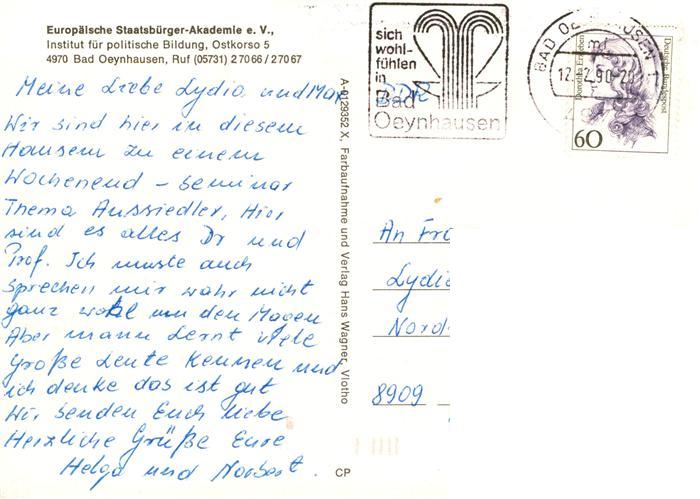 Europäische Staatsbürger-Akademie e. V.,
Institut für politische Bildung, Ostkorso 5
4970 Bad Oeynhausen, Ruf (05731) 27066 / 27067
Meine Liebe Lydia und Max
Wir sind hier in diesem
Hausem zu einem
Wochenend - Seminar
Thema Aussiedler, Hier
sind es alles Dr und
Prof. Ich muste auch
sprechen mir wahr nicht
ganz wohl um den Magen
Aber mann Lernt viele
Große Leute Kennen und
ich denke das ist gut
Wir senden Euch liebe
Herzliche Grüße Eure
Helga und Norbert.
A-0129352 X, Farbaufnahme und Verlag Hans Wagner, Vlotho
CP
sich
wohl-
fühlen
in
Bad
Oeynhausen
BAD OEYNHAUSEN
12.12.90-20
Deutsche Bundespost
60
An Fr
Lydia
Nord
8909